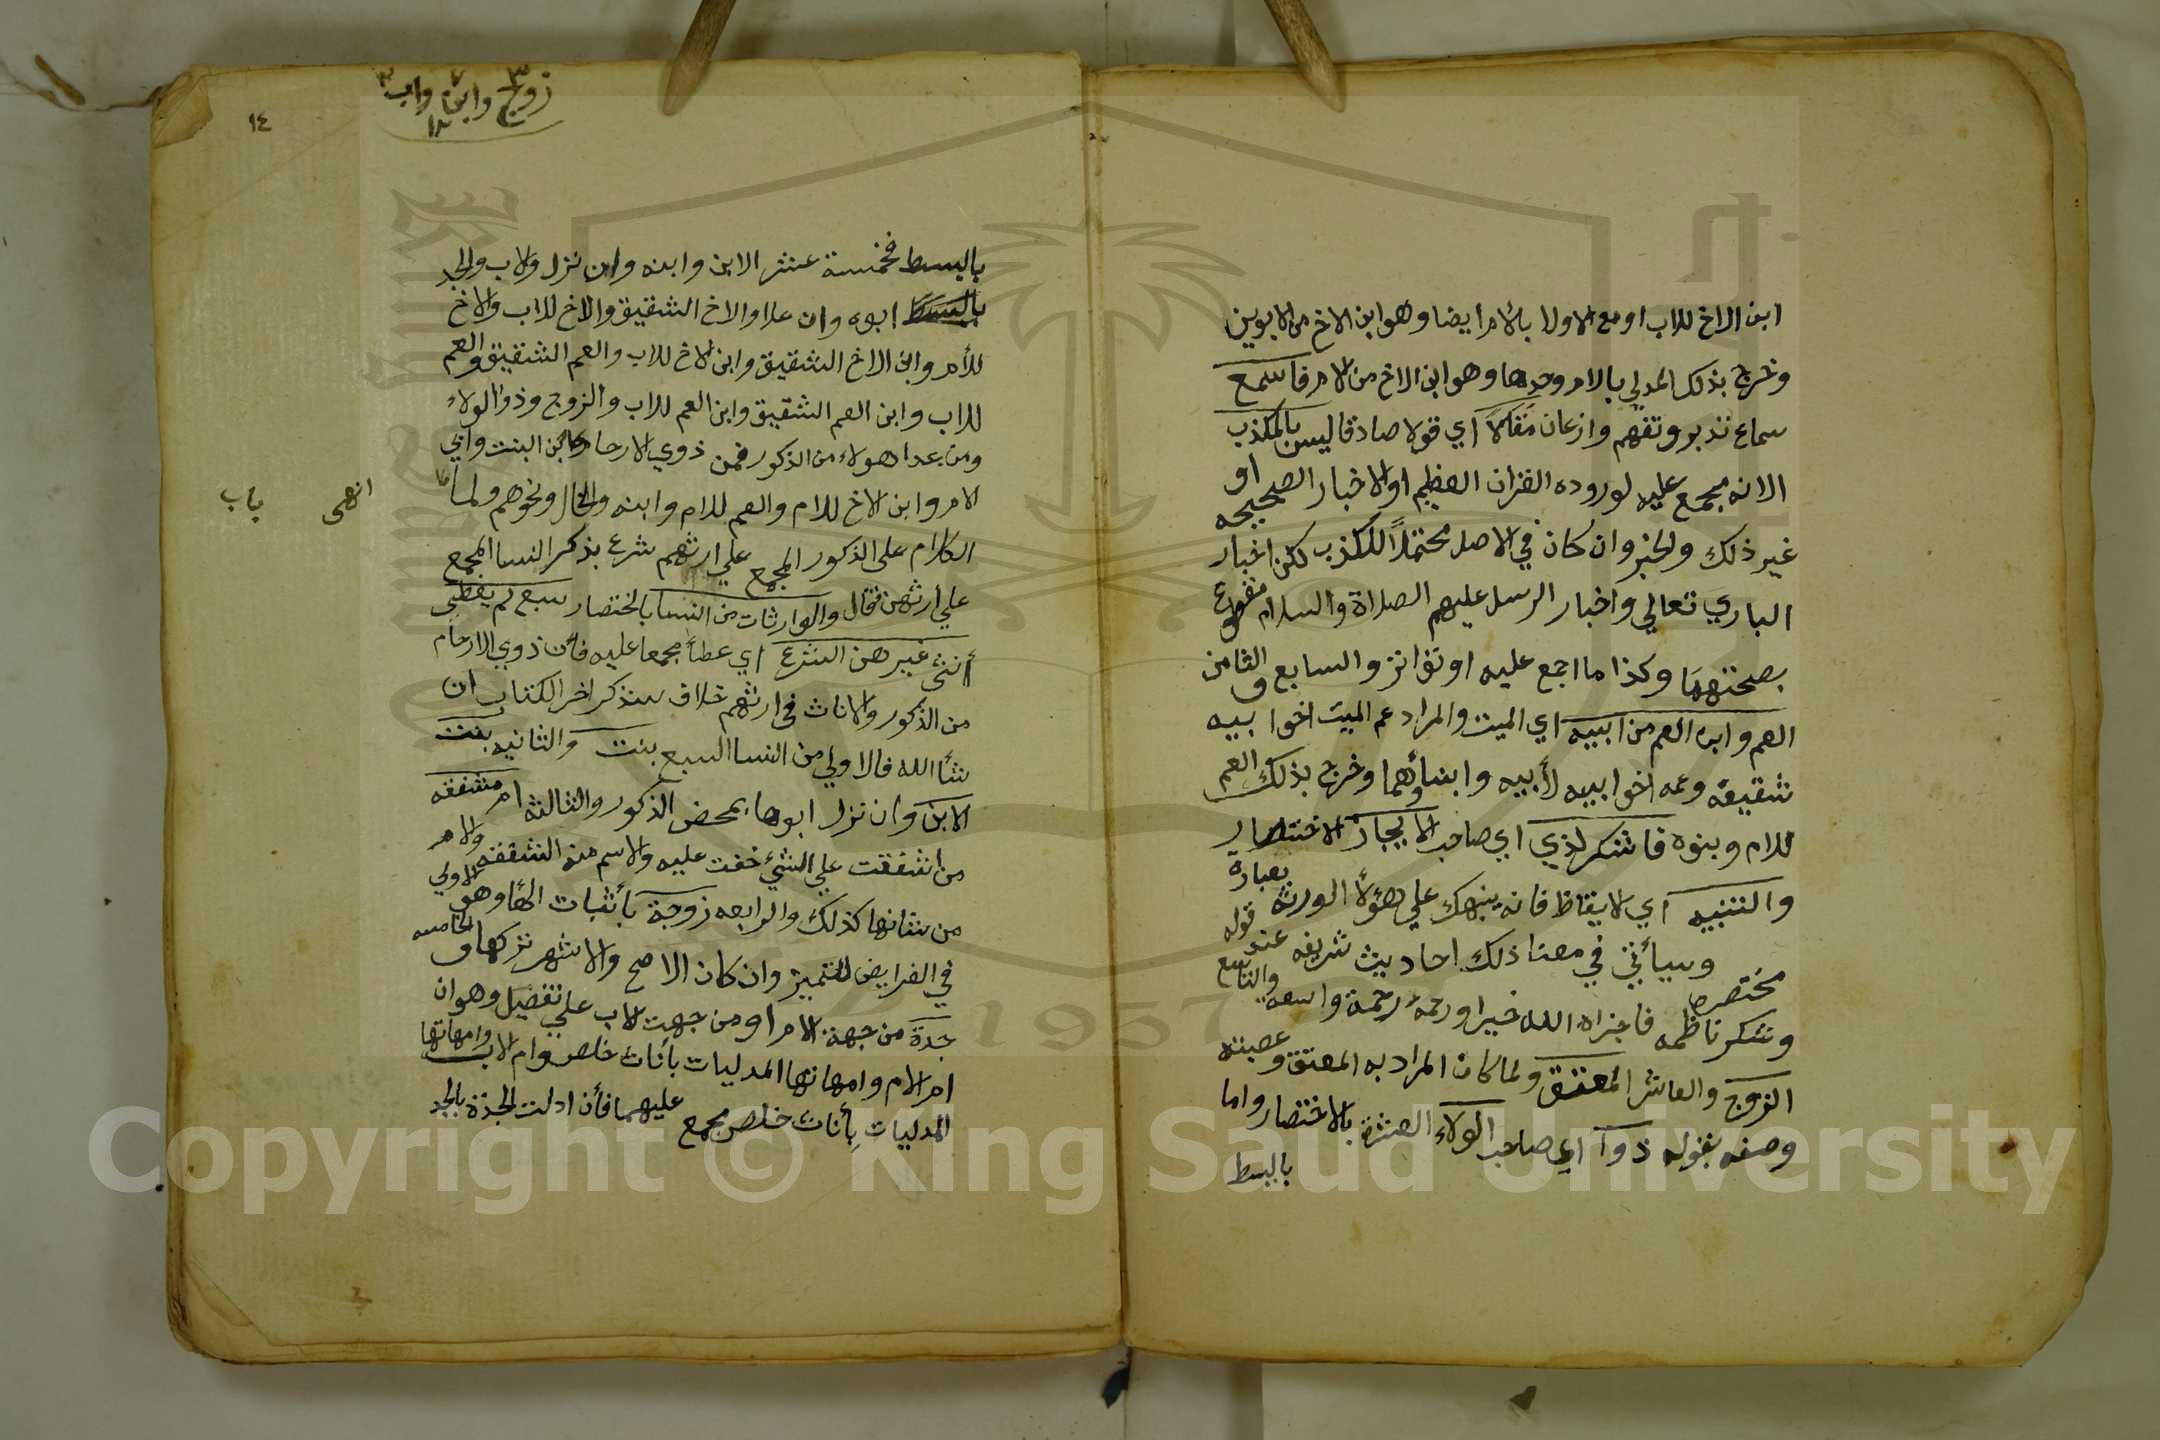 ابن الاخ للاب او مع الاولا بالام ايضا وهو ابن الاخ من الابوين
وخرج بذلك المدلي بالام وحدها وهو ابن الاخ من الام فاسمع
سماع تدبر وتفهم واذعان مقالاً اي قولا صادقا ليس بالمكذب
الانه مجمع عليه لوروده القران العظيم او الاخبار الصحيحه او
غير ذلك والخبر وان كان في الاصل محتملاً للكذب لكن اخبار
الباري تعالي واخبار الرسل عليهم الصلاة والسلام مقطوع
بصحتهما وكذا ما اجمع عليه او تواتر والسابع والثامن
العم وابن العم من ابيه اي الميت والمراد عم الميت اخوا بيه
شقيقه وعمه اخوا بيه لأبيه وابناؤهما وخرج بذلك العم
للام وبنوه فاشكر لذي اي صاحب الايجاز الاختصار
والتنبيه اي الايقاظ فانه ينبهك علي هؤلأ الورثه بعبارة
مختصره وسيأتي في معنا ذلك احاديث شريفه عند قوله
ونشكر ناظمه فاجزاه الله خيرا ورحمه رحمة واسعه والتاسع
الزوج والعاشر المعتق ولما كان المراد به المعتق وعصبته
وصفه بقوله ذوا اي صاحب الولاء العشرة بالاختصار واما
بالبسط
زوج وابن واب
١٢
١٤
بالبسط فخمسة عشر الابن وابنه وان نزل والاب والجد
بالبسط ابوه وان علا والاخ الشقيق والاخ للاب والاخ
للأم وابن الاخ الشقيق وابن الاخ للاب والعم الشقيق والعم
للاب وابن العم الشقيق وابن العم للاب والزوج وذوا الولاء
ومن عدا هولاء من الذكور فمن ذوي الارحام كابن البنت وابي
الام وابن الاخ للام والعم للام وابنه والخال ونحوهم ولما
انهى
باب
الكلام على الذكور المجمع علي ارثهم شرع بذكر النسا المجمع
علي ارثهن فقال والوارثات من النسا بالاختصار سبع لم يعطي
أنثى غيرهن الشرع اي عطأ مجمعا عليه فأن ذوي الارحام
من الذكور والاناث في ارثهم خلاف سنذكر اخر الكتاب ان
شأ الله فالاولي من النسا السبع بنت والثانيه بنت
الابن وان نزل ابوها بمحض الذكور والثالثه ام مشفقه
من اشفقت علي الشئ خفت عليه والاسم منه الشفقه والام
من شانها كذلك والرابعه زوجة بأثبات الهأ وهو الاولي
في الفرايض للتميز وان كان الاصح والاشهر تركها والخامسه
جدة من جهة الام او من جهت الاب علي تفصيل وهو ان
ام الام وامهاتها المدليات بأناث خلص وام الاب وامهاتها
المدليات بأناث خلص مجمع عليهما فأن ادلت الجدة بالجد
Copyright © King Saud University
1957